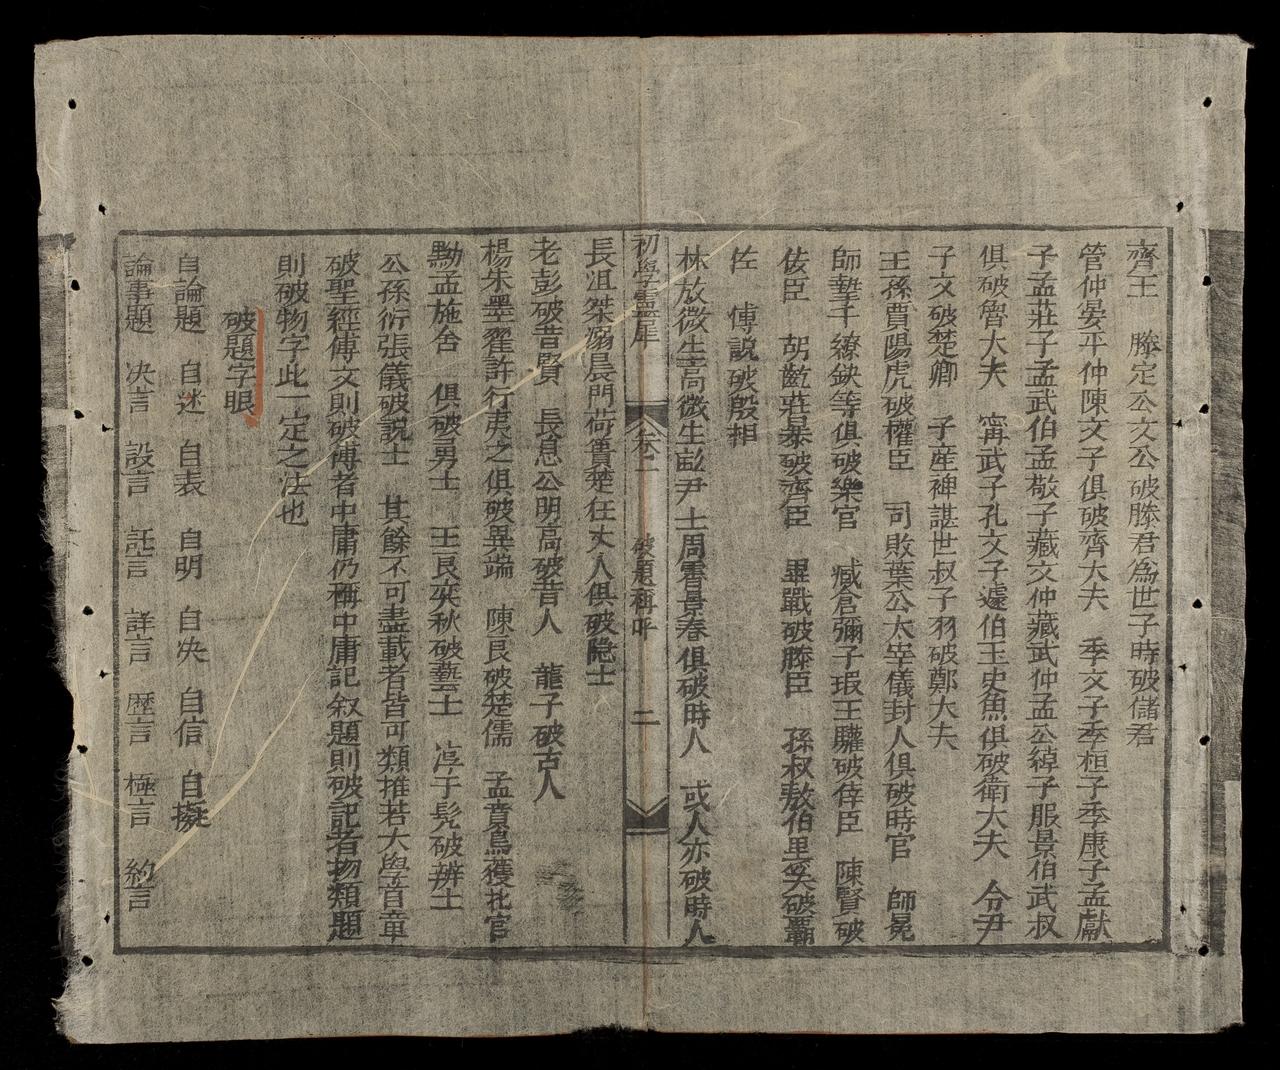 齊王　滕定公文公破滕君為世子時破儲君
管仲晏平仲陳文子俱破齊大夫　季文子季桓子季康子孟獻
子孟莊子孟武伯孟敬子藏文仲藏武仲孟公綽子服景伯武叔
俱破魯大夫　甯武子孔文子蘧伯玉史魚俱破衛大夫　令尹
子文破楚卿　子產裨諶世叔子羽破鄭大夫
王孫賈陽虎破權臣　司敗葉公太宰儀封人俱破時官　師冕
師摯干繚缺等俱破樂官　臧倉彌子瑕王驩破倖臣　陳賢破
佐臣　胡齕莊暴破齊臣　畢戰破滕臣　孫叔敖伯里奚破霸
佐　傅說破殷相
林放微生高微生畝尹士周霄景春俱破時人　或人亦破時人
初學靈犀　卷二　破題稱呼　二
長沮桀溺晨門荷蕢楚狂丈人俱破隐士
老彭破昔賢　長息公明高破昔人　龍子破古人
楊朱墨翟許行夷之俱破異端　陳良破楚儒　孟賁烏獲北宮
黝孟施舍　俱破勇士　王良奕秋破藝士　淳于髡破辨士
公孫衍張儀破説士　其餘不可盡載者皆可類推若大學首章
破聖經傳文則破傳者中庸仍稱中庸記叙題則破記者物類題
則破物字此一定之法也
破題字眼
自論題　自述　自表　自明　自决　自信　自擬
論事題　决言　設言　託言　詳言　歴言　極言　約言